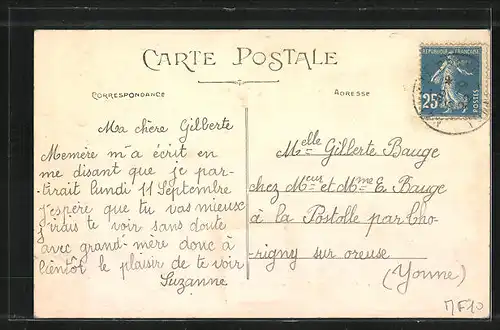 CARTE POSTALE
CORRESPONDANCE
ADRESSE
REPUBLIQUE FRANÇAISE
25c
POSTES
Ma chère Gilberte
Memère m'a écrit en
me disant que je par-
tirait lundi 11 Septembre
j'espère que tu vas mieuse
j'irais te voir sans doute
avec grand-mère donc à
bientôt le plaisir de te voir
Suzanne
Melle Gilberte Bauge
chez Meur et Mme E. Bauge
à la Postolle par Tho-
rigny sur oreuse
(Yonne)
MF10